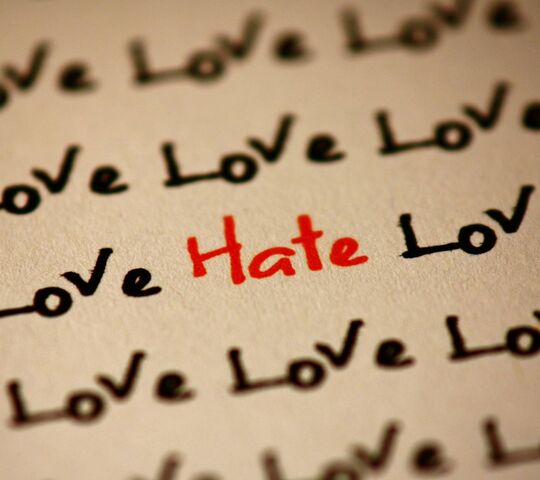 ove Love Love
Love Love Love
Love Hate Lov
Love Love Lov
Love